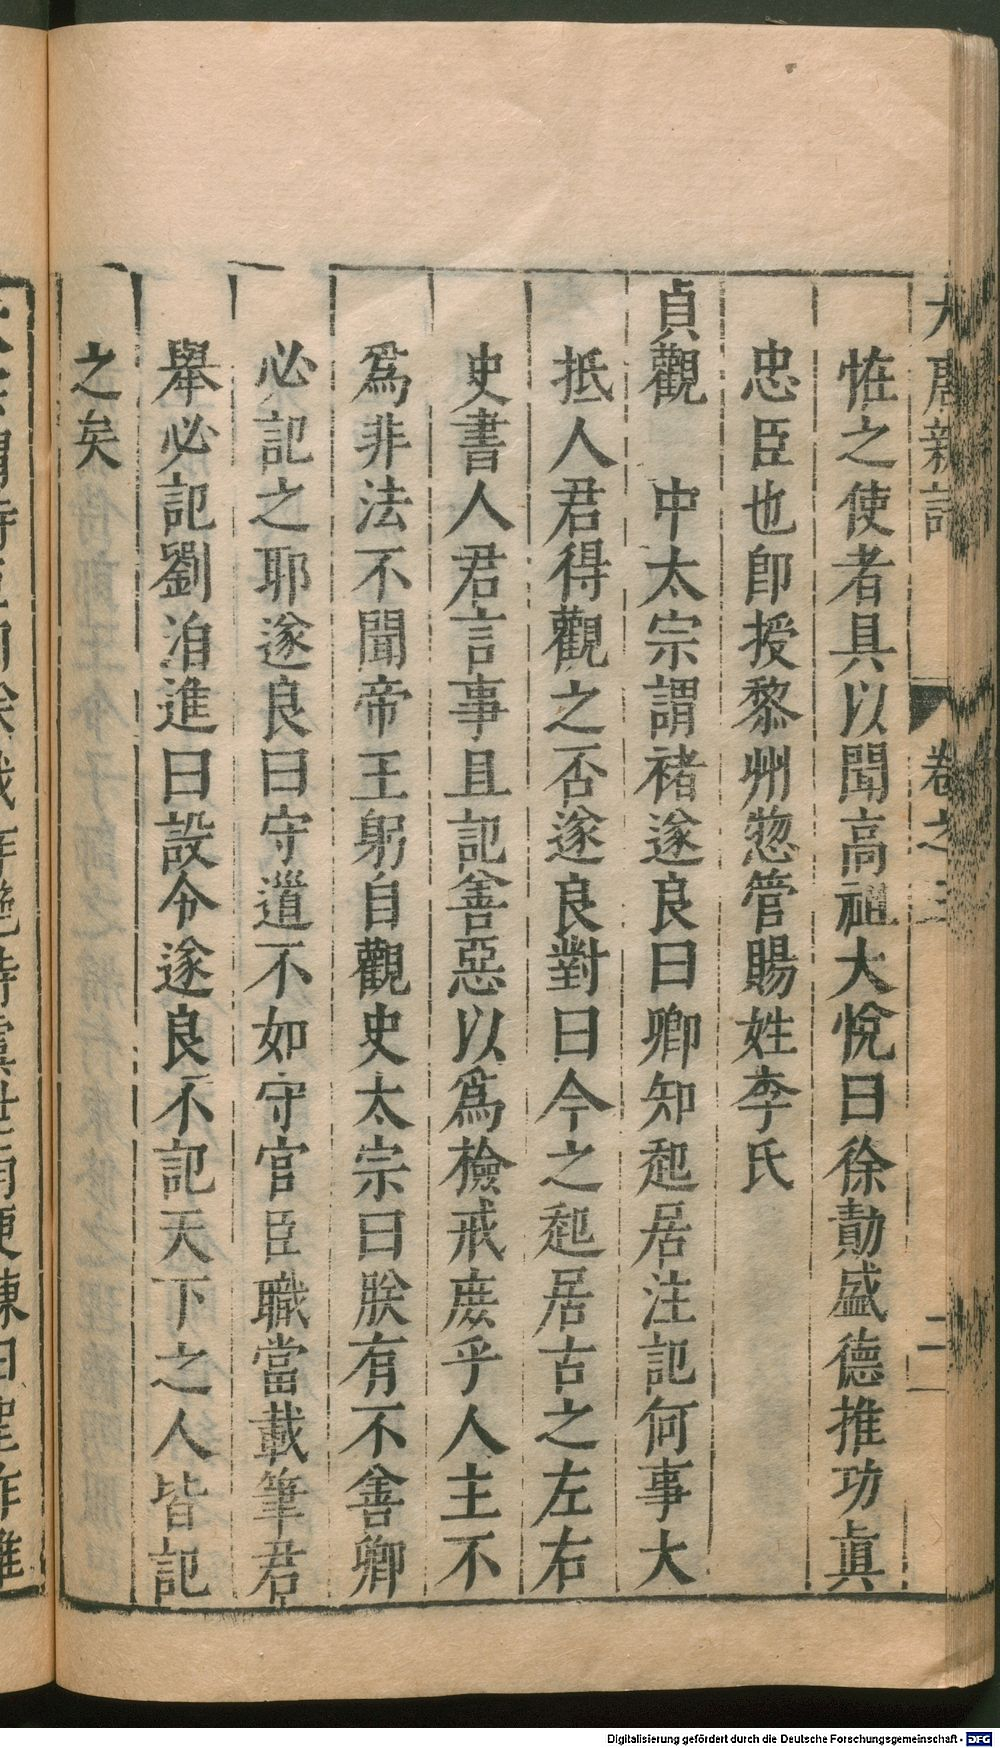 大唐新語 卷之三 二
恠之使者具以聞高祖大悅曰徐勣盛德推功眞
忠臣也卽授黎州惣管賜姓李氏
貞觀 中太宗謂褚遂良曰卿知起居注記何事大
抵人君得觀之否遂良對曰今之起居古之左右
史書人君言事且記善惡以爲檢戒庶乎人主不
爲非法不聞帝王躬自觀史太宗曰朕有不善卿
必記之耶遂良曰守道不如守官臣職當載筆君
舉必記劉洎進曰設令遂良不記天下之人皆記
之矣
Digitalisierung gefördert durch die Deutsche Forschungsgemeinschaft - DFG